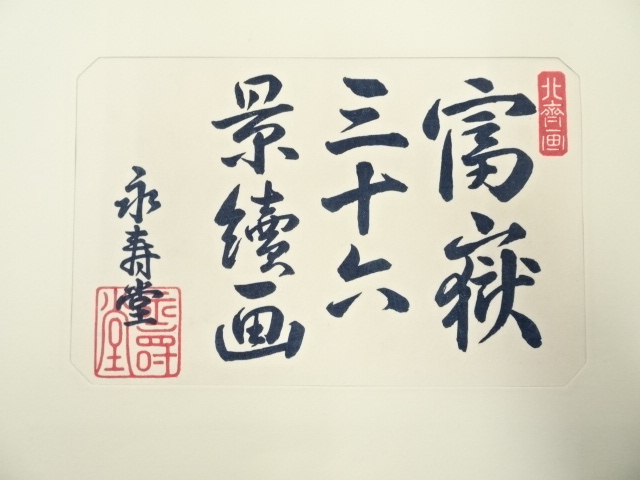 北齋画
富嶽
三十六
景續画
永寿堂